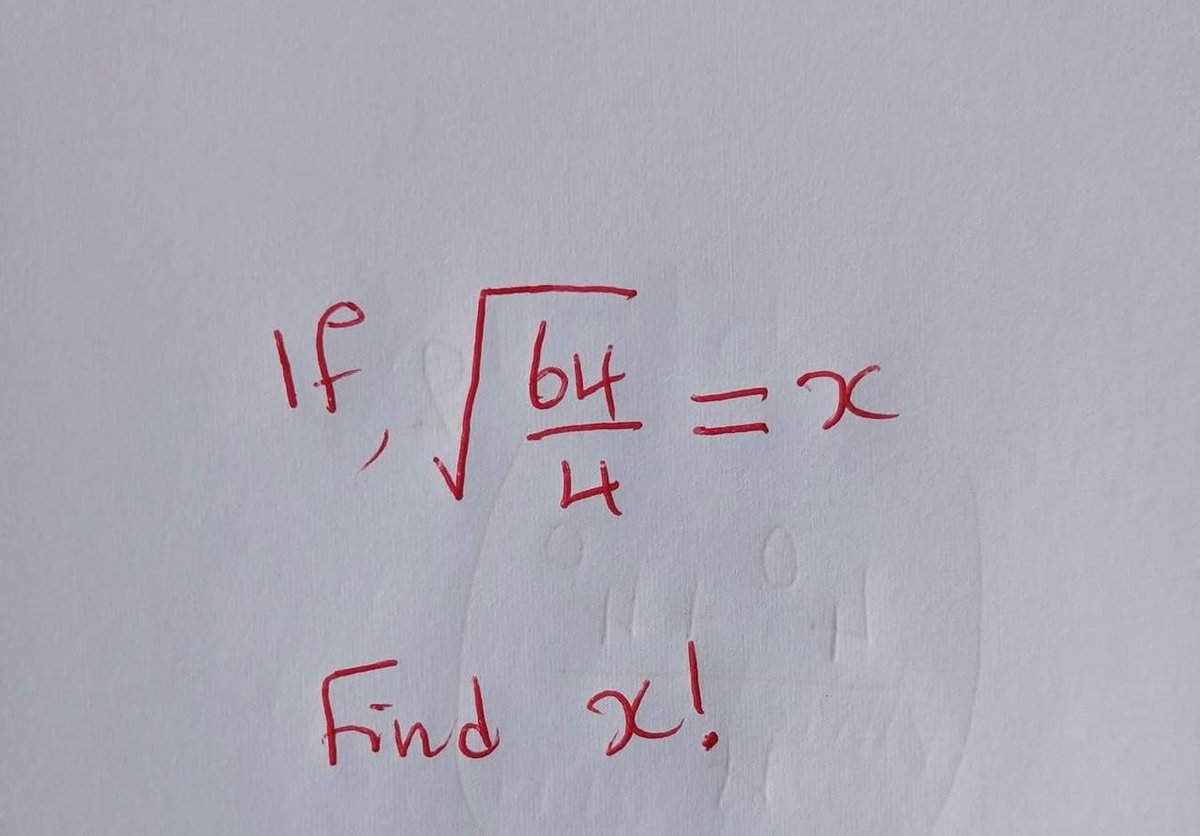 If, √(64/4) = x
Find x!